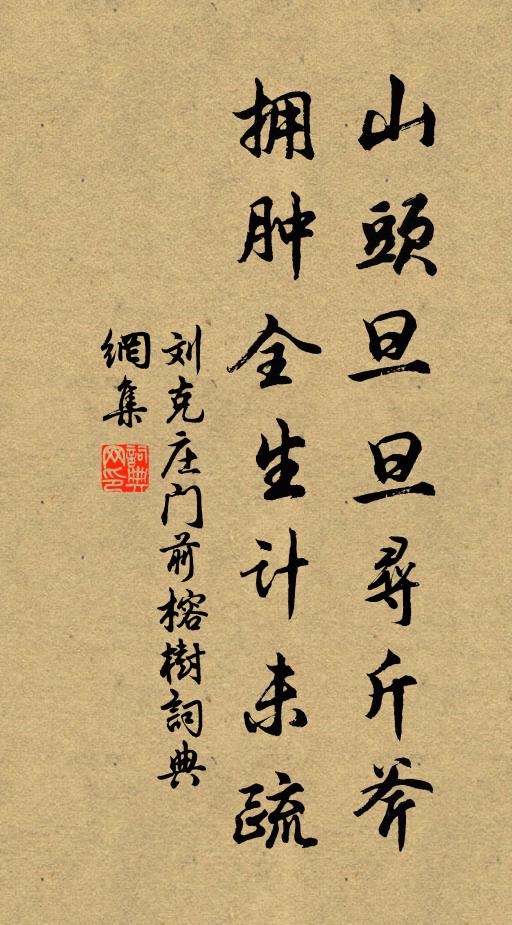 山頭旦旦尋斤斧
拥肿全生计未疏
刘克庄门前榕樹詞典
網集
詞典網印